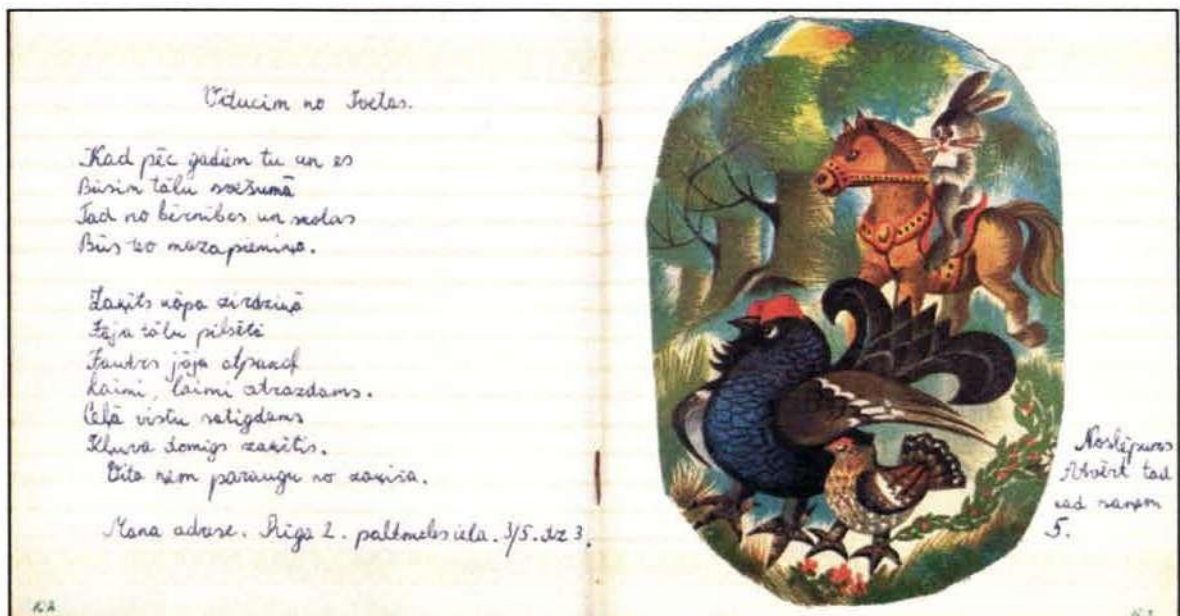 Vitucim no Ivetas.
Kad pēc gadiem tu un es
Būsim tālu svešumā
Tad no bērnības un skolas
Būs šo maza piemiņa.
Zaķīts kāpa zirdziņā
Jāja tālu pilsētā
Jautrs jāja atpakaļ
Laimi, laimi atrazdams.
Ceļā vistu satigdams
Kļuva domīgs zaķītis.
Vita ņem paraugu no zaķīša.
Mana adrese. Rīga 2. iela. 3/5. dz 3.
Noslēpums
Atvērt tad
kad saņem
5.